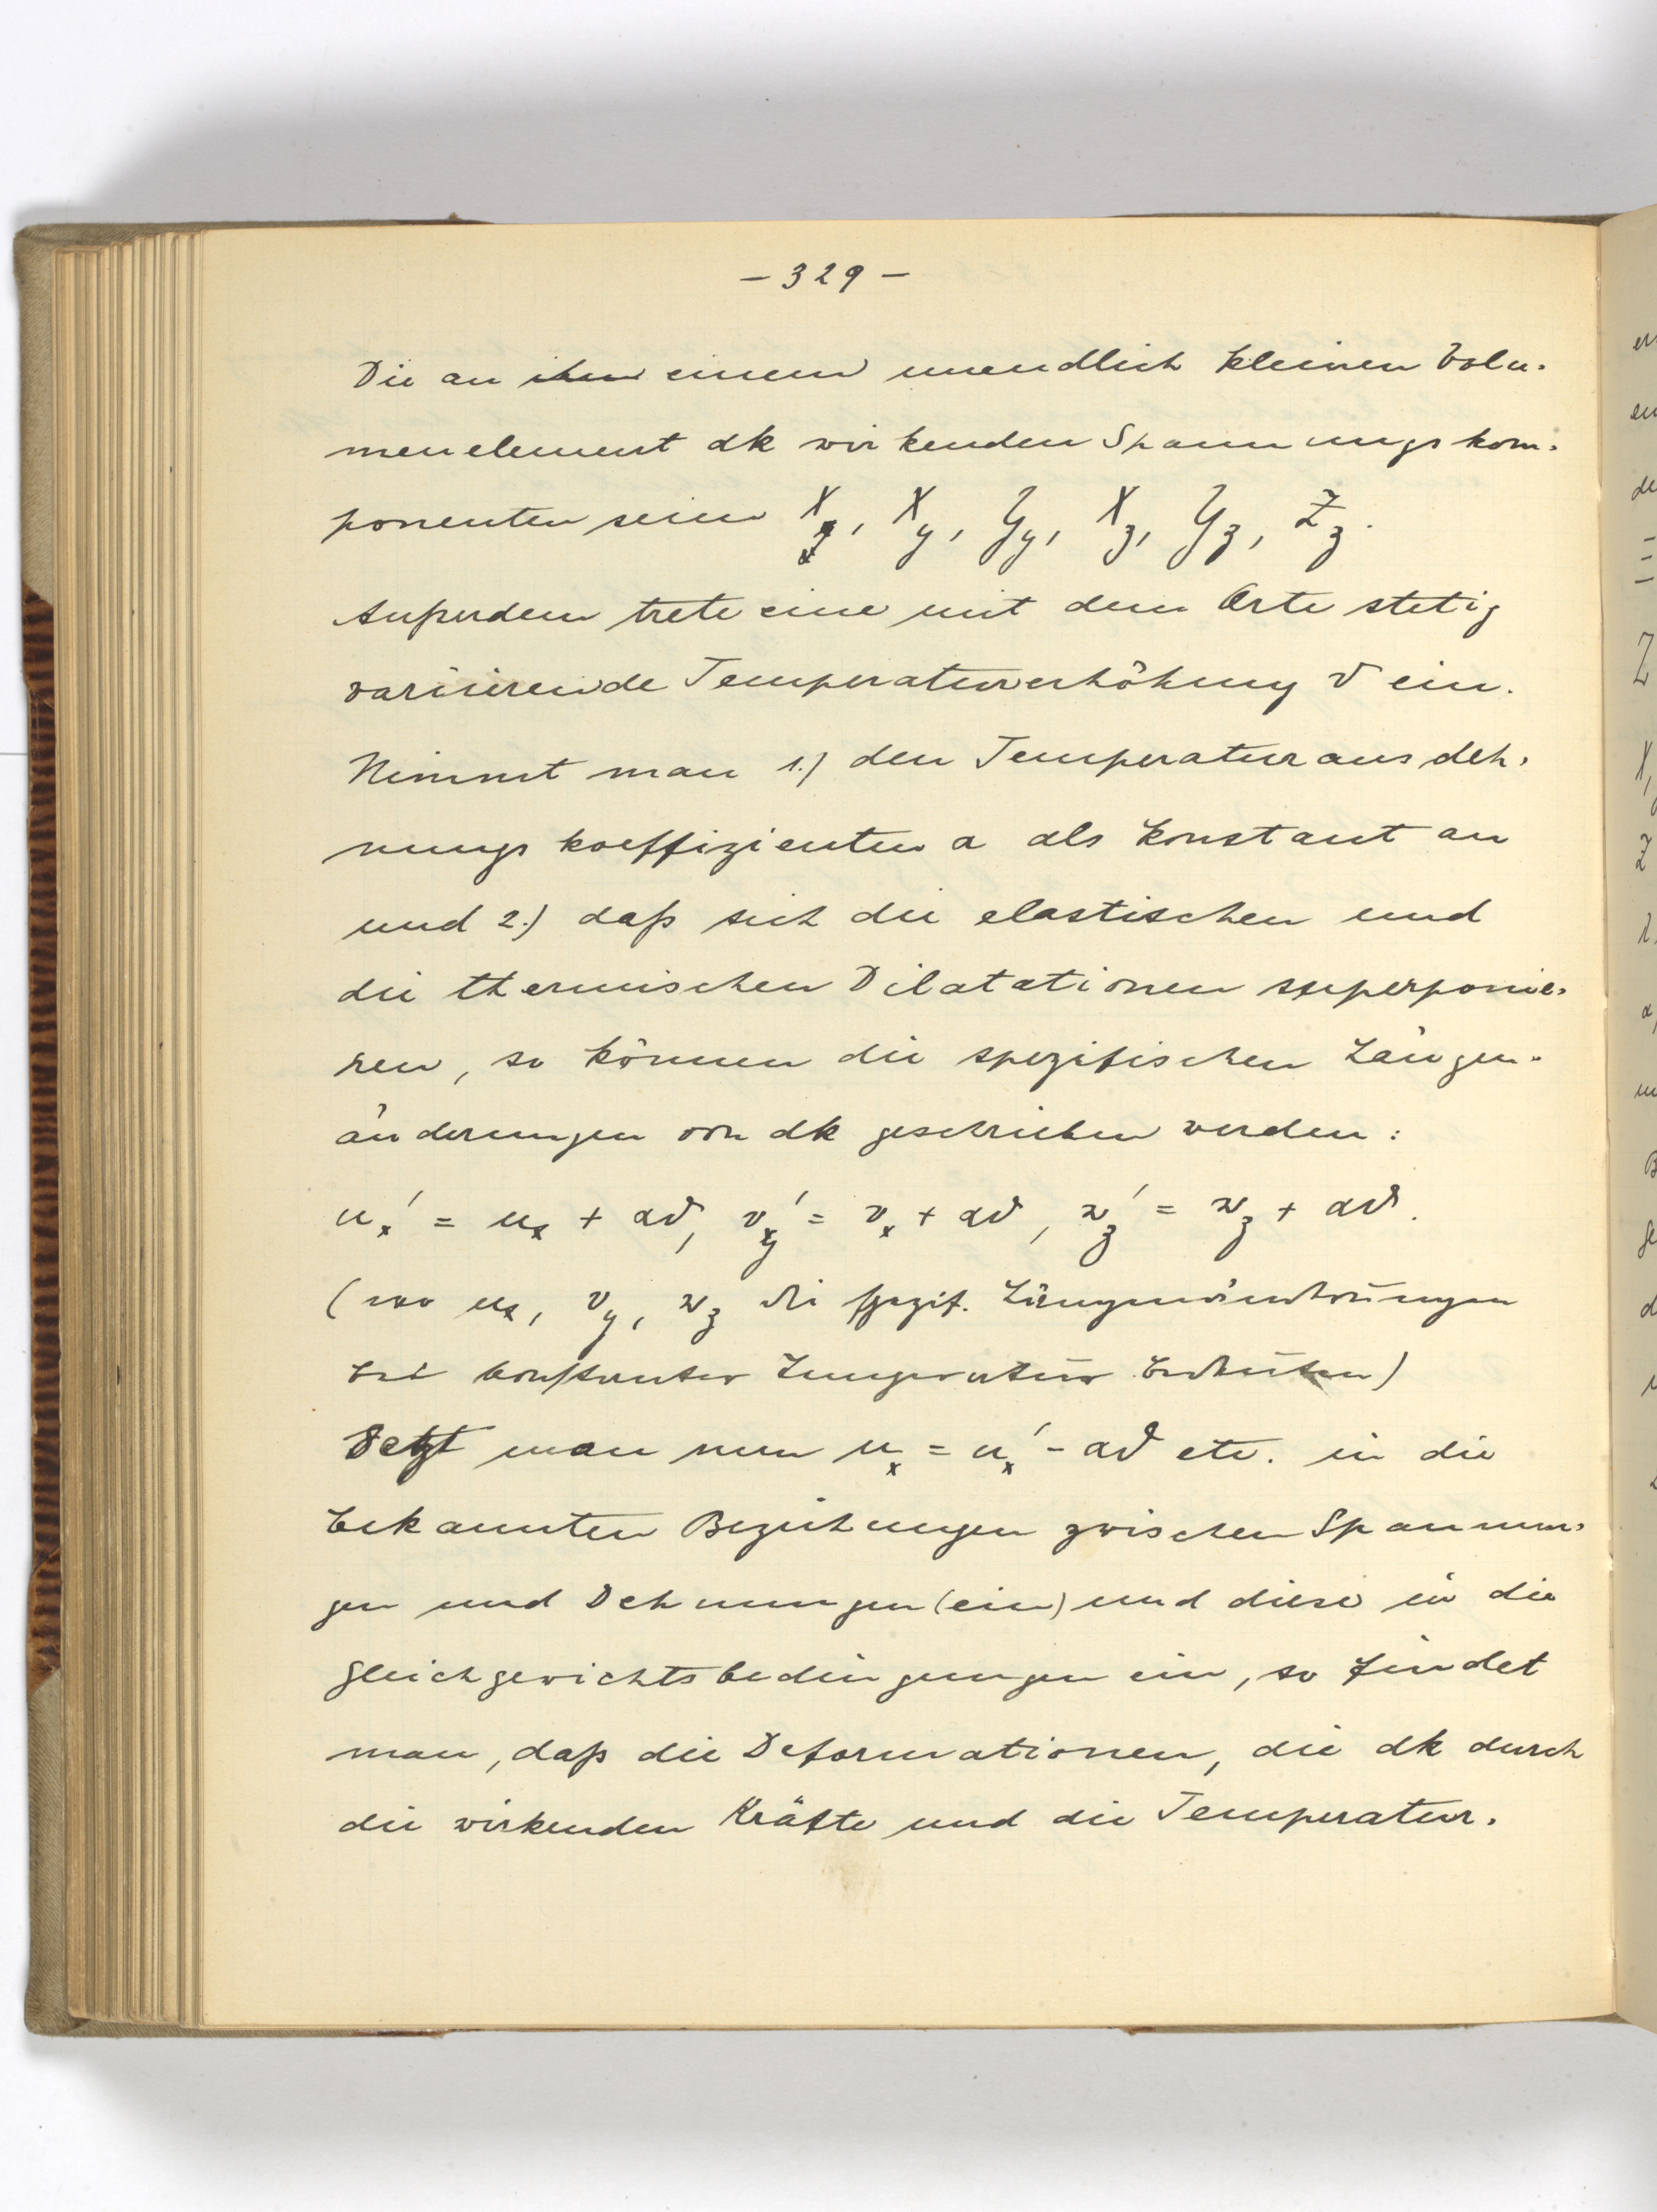 - 329 -
Die an ihm einem unendlich kleinen Volu-
menelement dk wirkenden Spannungskom-
ponenten seien X_x, X_y, Y_y, X_z, Y_z, Z_z.
Außerdem trete eine mit dem Orte stetig
variierende Temperaturerhöhung ϑ ein.
Nimmt man 1.) den Temperaturausdeh-
nungskoeffizienten α als konstant an
und 2.) daß sich die elastischen und
die thermischen Dilatationen superponie-
ren, so können die spezifischen Längen-
änderungen von dk geschrieben werden:
u_x' = u_x + αϑ, v_y' = v_x + αϑ, w_z' = w_z + αϑ.
(wo u_x, v_y, w_z die spezif. Längenänderungen
bei konstanter Temperatur bedeuten)
Setzt man nun u_x = u_x' - αϑ etc. in die
bekannten Beziehungen zwischen Spannun-
gen und Dehnungen (ein) und diese in die
Gleichgewichtsbedingungen ein, so findet
man, daß die Deformationen, die dk durch
die wirkenden Kräfte und die Temperatur-